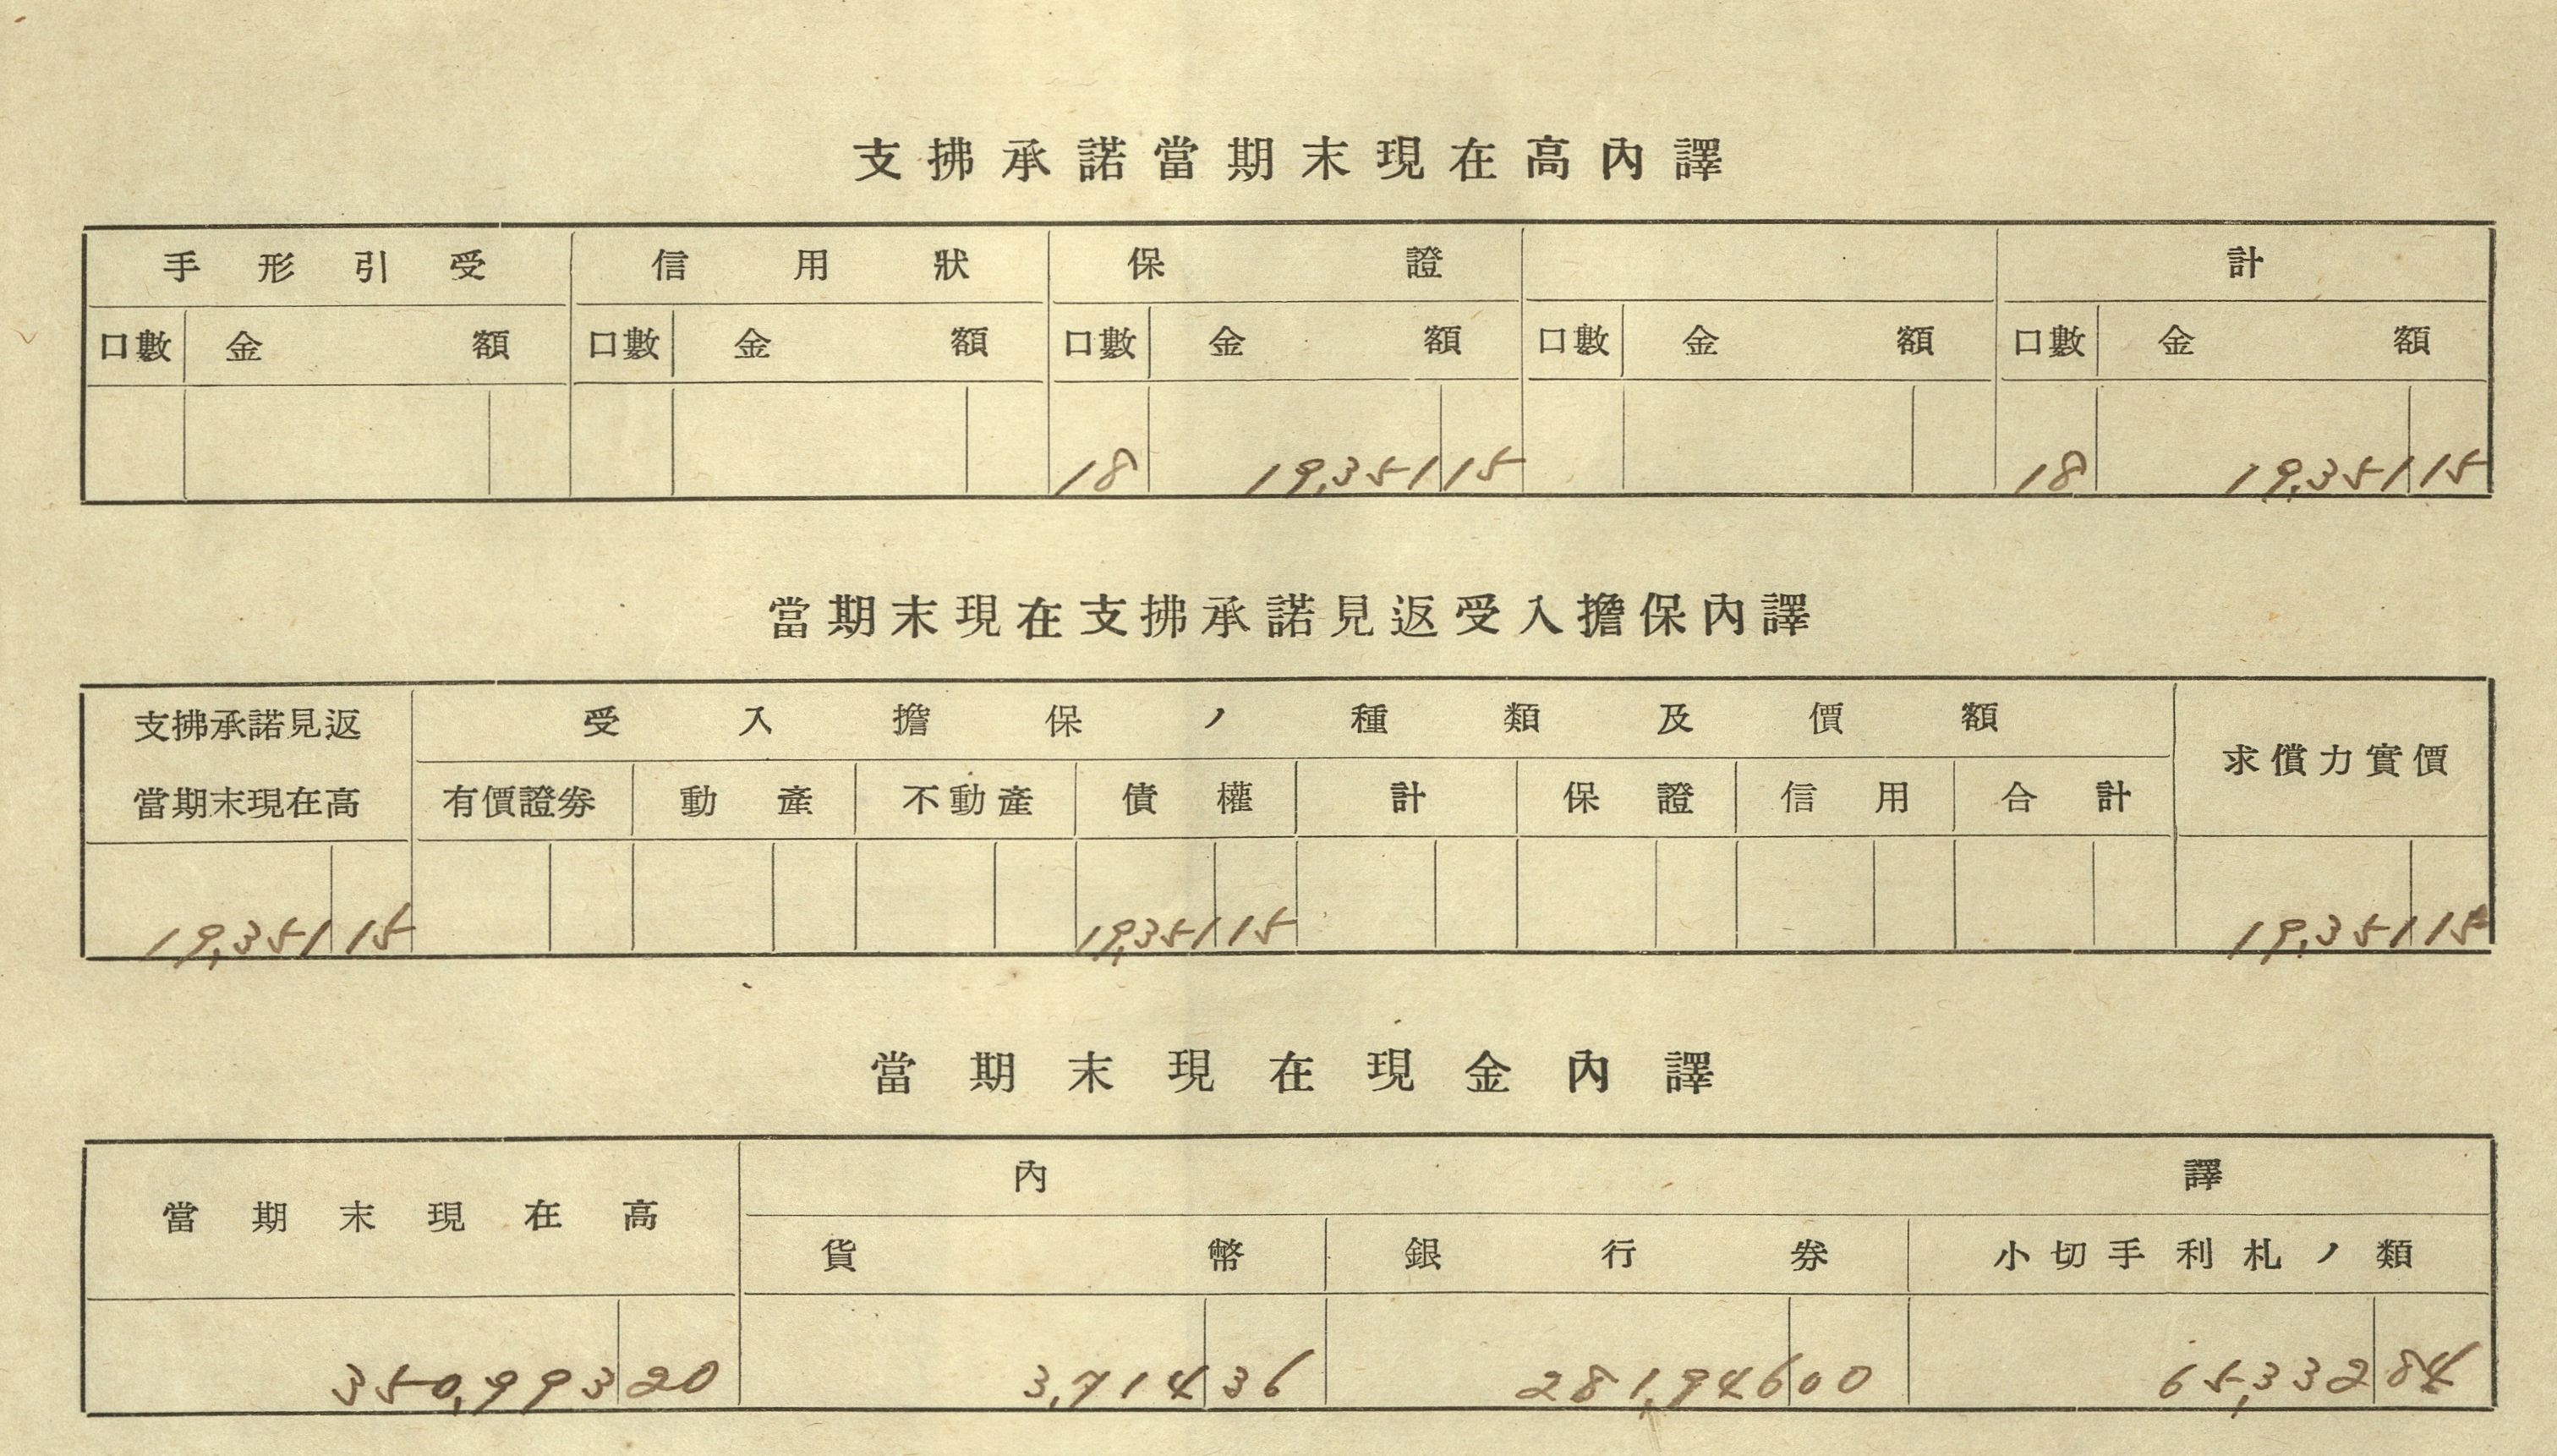 支拂承諾當期末現在高內譯
手形引受 信用狀 保證 計
口數 金額 口數 金額 口數 金額 口數 金額 口數 金額
18 19,351 15 18 19,351 15
當期末現在支拂承諾見返受入擔保內譯
支拂承諾見返 受入擔保ノ種類及價額 求償力實價
當期末現在高 有價證劵 動產 不動產 債權 計 保證 信用 合計
19,351 15 19,351 15 19,351 15
當期末現在現金內譯
當期末現在高 內譯
貨幣 銀行劵 小切手利札ノ類
350,993 20 3,714 36 281,946 00 65,332 84